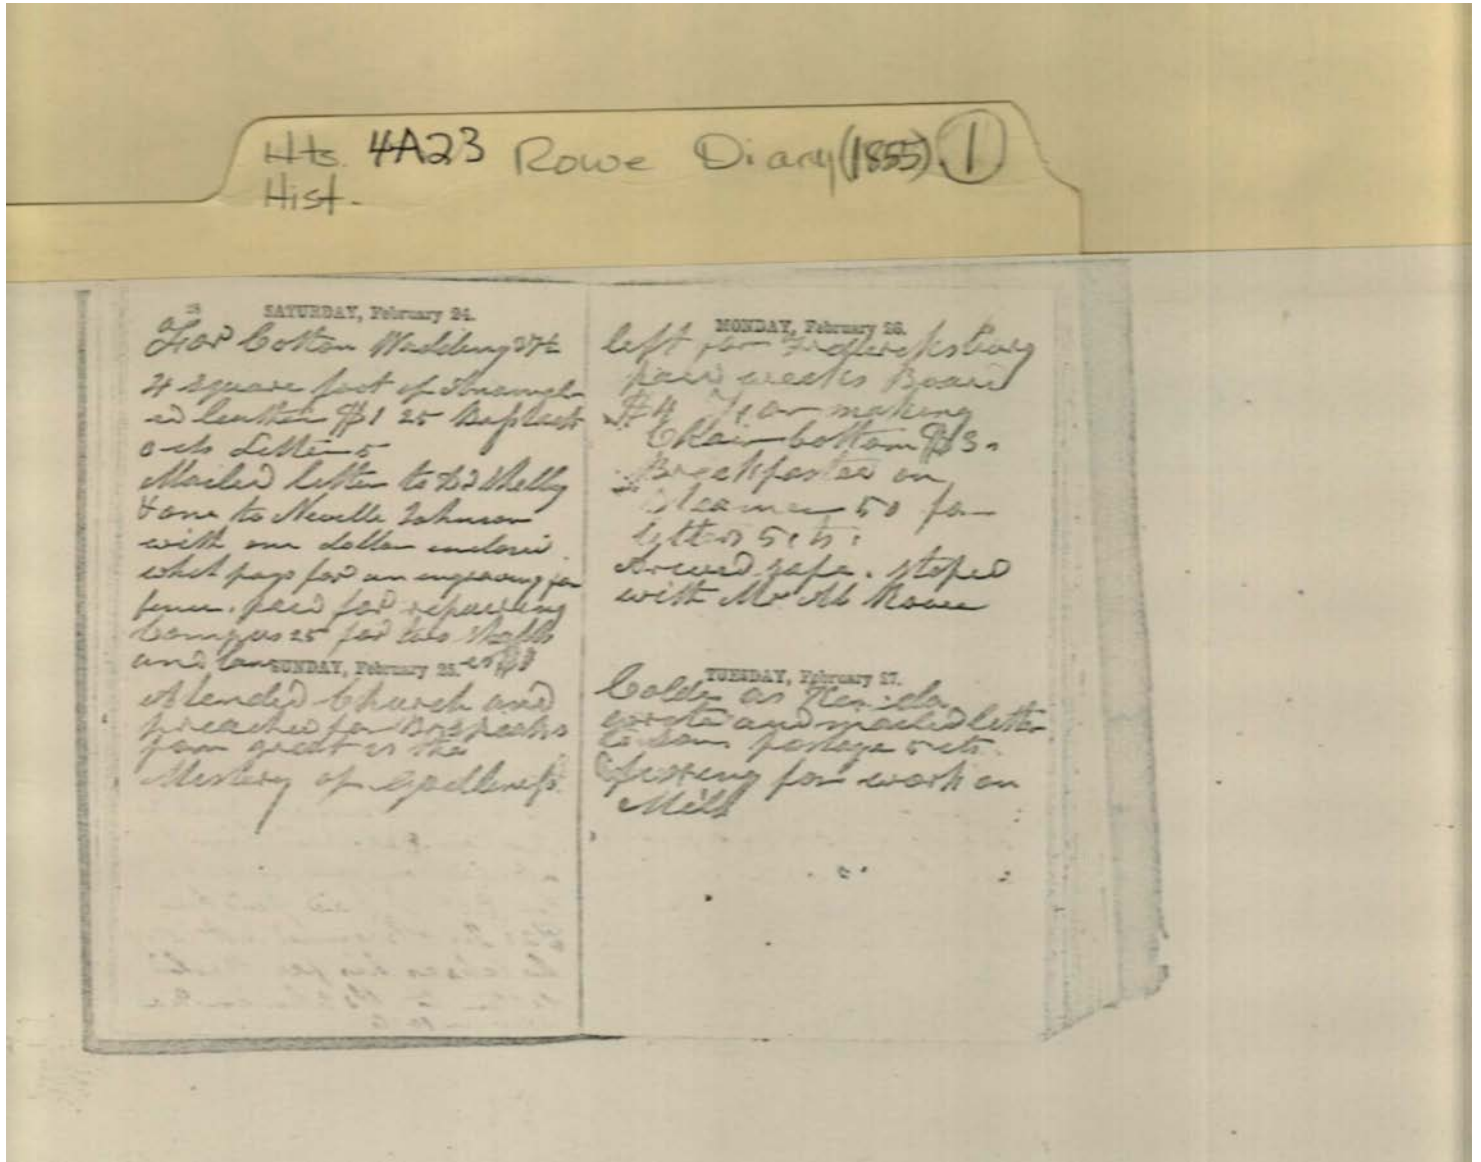 Hts. 4A23 Rowe Diary (1855) 1
Hist.
SATURDAY, February 24.
For Cotton Wadding 37½
4 square foot of
ed leather $1 25
o cts Letter 5
Mailed letter to Shelly
& one to Neville Johnson
with one dollar enclosed
what pays for an engraving for
fence. paid for repairing
Compas 25 for two
and
SUNDAY, February 25.
Atended Church and
preached for
from great is the
Mistery of Godliness.
MONDAY, February 26.
left for Fredericksburg
paid weeks Board
$4 For making
Chair bottom $3.
Breakfasted on
Steamer 50 for
letters 5 cts.
Arived safe. stoped
with Mr Ab Rowe
TUESDAY, February 27.
Colder as
wrote and mailed letter
to Sam postage 5 cts.
fixing for work on
Mill